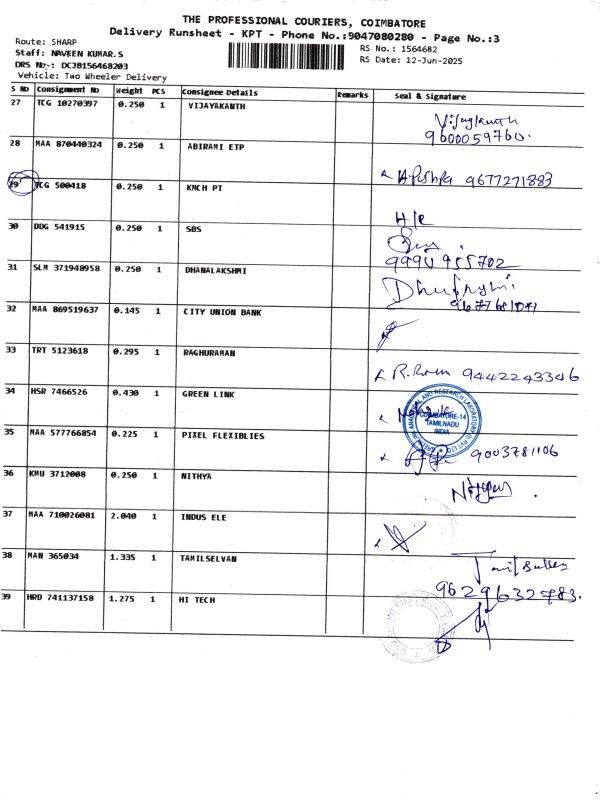 THE PROFESSIONAL COURIERS, COIMBATORE
Delivery Runsheet - KPT - Phone No.:9047080280 - Page No.:3
Route: SHARP
Staff: NAVEEN KUMAR.S
DRS No.: DCJB156468203
Vehicle: Two Wheeler Delivery
RS No.: 1564682
RS Date: 12-Jun-2025
S No Consignment No Weight PCS Consignee Details Remarks Seal & Signature
27 TCG 10270397 0.250 1 VIJAYAKANTH Vijayakanth
9600059760.
28 MAA 870440324 0.250 1 ABIRAMI ETP 9677271883
29 TCG 500418 0.250 1 KMCH PT H/R
30 DDG 541915 0.250 1 SBS
9990955702
31 SLM 371948958 0.250 1 DHANALAKSHMI
32 MAA 869519637 0.145 1 CITY UNION BANK
33 TRT 5123618 0.295 1 RAGHURAMAN R.Ram 9442243346
34 HSR 7466526 0.430 1 GREEN LINK
COIMBATORE-14
TAMILNADU
INDIA
35 MAA 577766854 0.225 1 PIXEL FLEXIBLIES 9003781106
36 KMU 3712008 0.250 1 NITHYA
37 MAA 710026081 2.040 1 INDUS ELE
38 MAN 365034 1.335 1 TAMILSELVAN
9629632783.
39 HRD 741137158 1.275 1 HI TECH